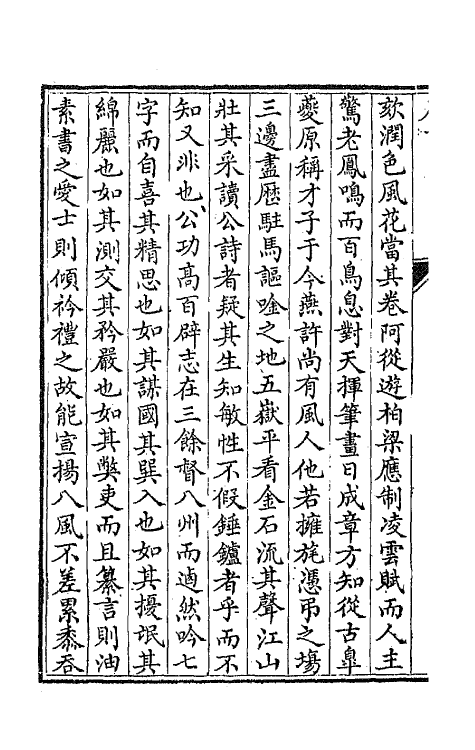 欬潤色風花當其卷阿從遊柏梁應制凌雲賦而人主
驚老鳳鳴而百鳥息對天揮筆晝日成章方知從古臯
夔原稱才子于今燕許尚有風人他若擁旄憑弔之塲
三邊盡歴駐馬謳唫之地五嶽平看金石流其聲江山
壯其采讀公詩者疑其生知敏性不假錘鑪者乎而不
知又非也公功髙百辟志在三餘督八州而逌然吟七
字而自喜其精思也如其謀國其巽入也如其擾氓其
綿麗也如其測交其矜嚴也如其獘吏而且纂言則油
素書之愛士則傾衿禮之故能宣揚八風不差累黍吞